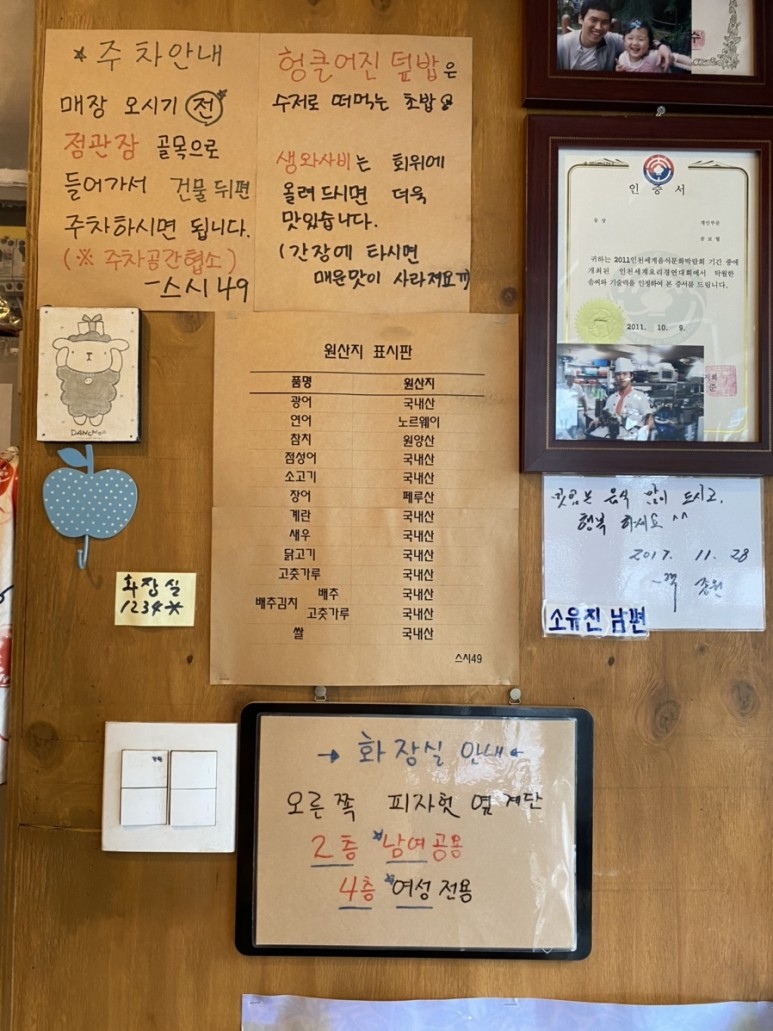 * 주차안내
매장 오시기 전
정관장 골목으로
들어가서 건물 뒤편
주차하시면 됩니다.
(※ 주차공간협소)
-스시49
헝클어진 덮밥은
수저로 떠먹는 초밥
생와사비는 회위에
올려 드시면 더욱
맛있습니다.
(간장에 타시면
매운맛이 사라져요
인 증 서
귀하는 2011인천세계음식문화박람회 기간 중에
개최된 인천세계요리경연대회에서 탁월한
솜씨와 기술력을 인정하여 본 증서를 드립니다.
2011. 10. 9.
DANCHOO
원산지 표시판
품명 원산지
광어 국내산
연어 노르웨이
참치 원양산
점성어 국내산
소고기 국내산
장어 페루산
계란 국내산
새우 국내산
닭고기 국내산
고춧가루 국내산
배추김치 배추 국내산
고춧가루 국내산
쌀 국내산
스시49
맛있는 음식 많이 드시고,
행복 하세요 ^^
2017. 11. 28
소유진 남편
화장실
1234*
→ 화장실 안내 ←
오른쪽 피자헛 옆 계단
2층 *남여공용
4층 *여성 전용